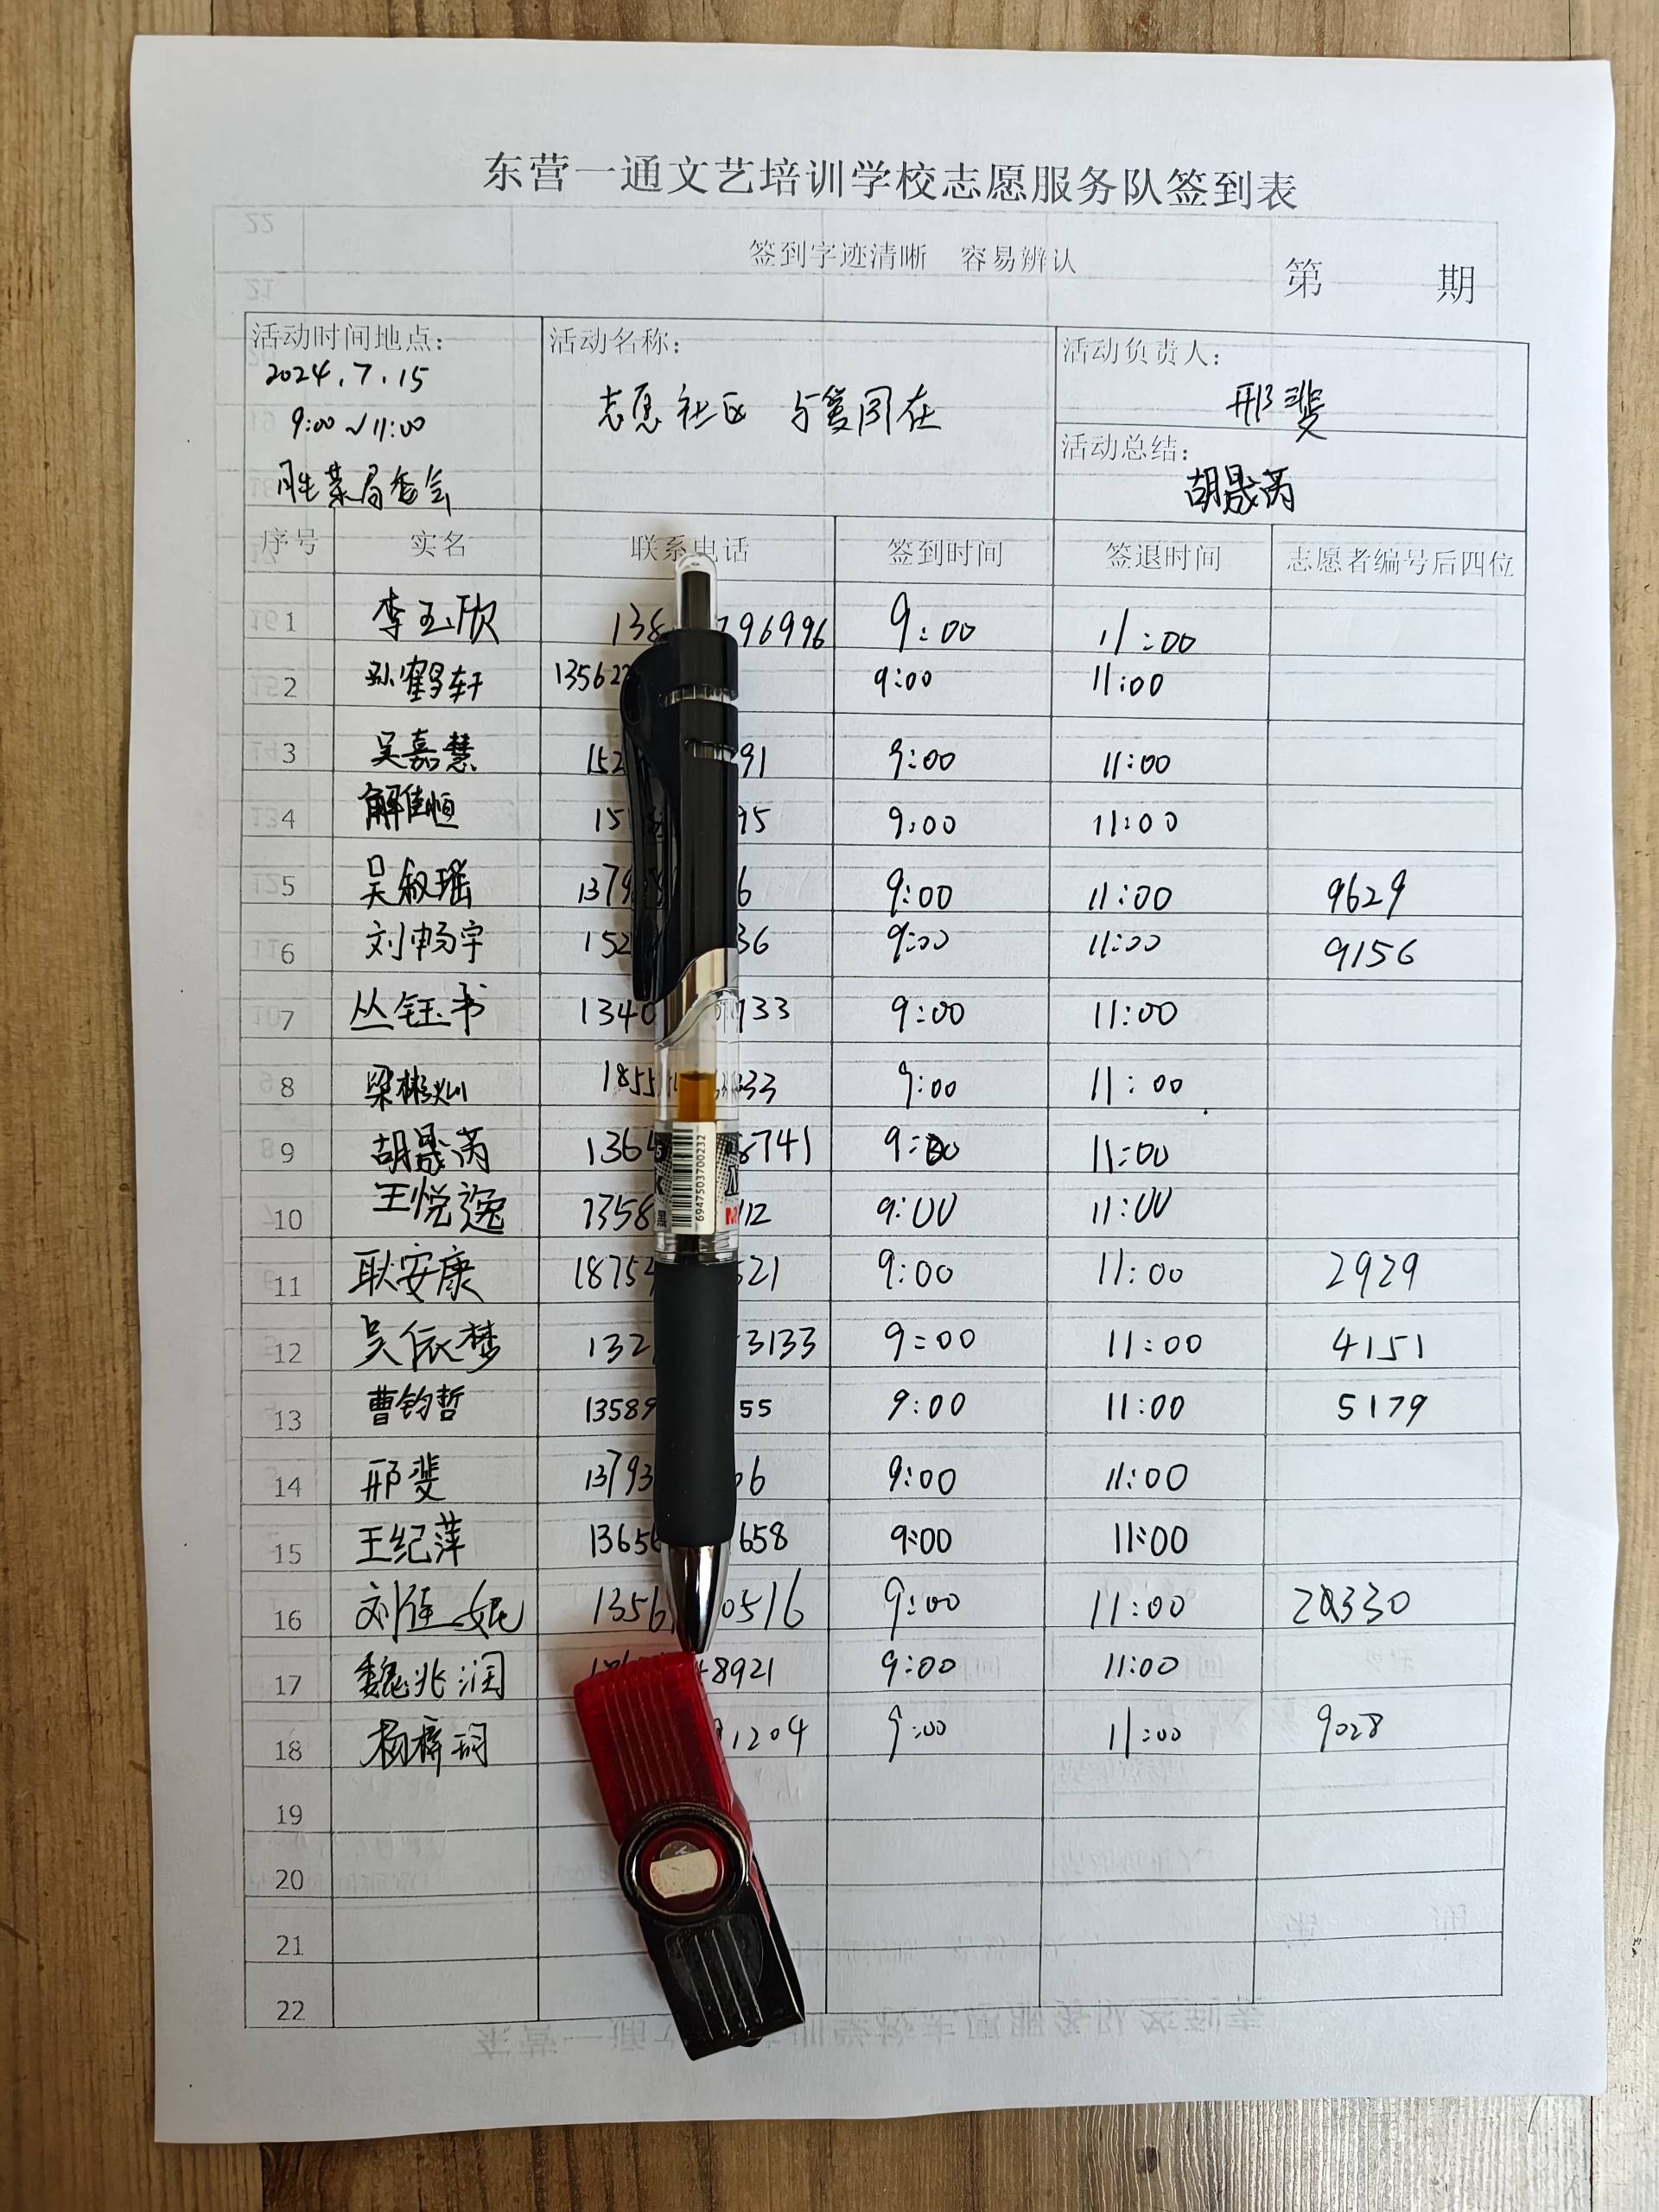 东营一通文艺培训学校志愿服务队签到表
签到字迹清晰 容易辨认
第 期
活动时间地点： 活动名称： 活动负责人：
2024.7.15
9:00~11:00 志愿社区 与爱同在 邢斐
活动总结：
胜 居委会 胡晟芮
序号 实名 联系电话 签到时间 签退时间 志愿者编号后四位
1 李玉欣 138 796996 9:00 11:00
2 孙鹤轩 135622 9:00 11:00
3 吴嘉慧 152 91 9:00 11:00
4 解佳恒 15 95 9:00 11:00
5 吴叙瑶 1379 6 9:00 11:00 9629
6 刘畅宇 152 36 9:00 11:00 9156
7 丛钰书 1340 933 9:00 11:00
8 梁彬灿 1855 333 9:00 11:00
9 胡晟芮 1364 8741 9:00 11:00
10 王悦逸 1358 112 9:00 11:00
11 耿安康 1875 521 9:00 11:00 2929
12 吴依梦 132 3133 9:00 11:00 4151
13 曹钧哲 13589 55 9:00 11:00 5179
14 邢斐 13793 06 9:00 11:00
15 王纪萍 13656 658 9:00 11:00
16 刘佳妮 1356 0516 9:00 11:00 2 330
17 魏兆润 8921 9:00 11:00
18 杨梓 1204 9:00 11:00 9028
19
20
21
22
6947503700232